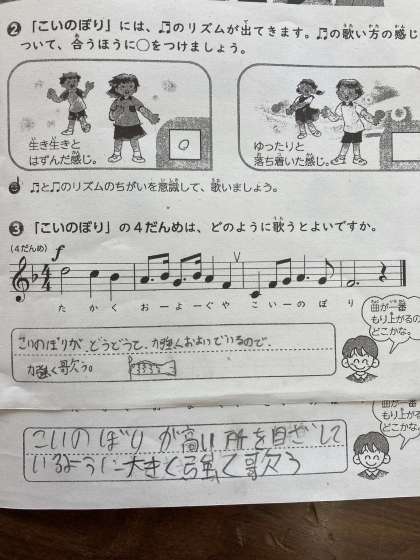 ❷「こいのぼり」には、♫のリズムが出てきます。♫の歌い方の感じ
ついて、合うほうに○をつけましょう。
生き生きと
はずんだ感じ。
○
ゆったりと
落ち着いた感じ。
♫と♫のリズムのちがいを意識して、歌いましょう。
❸「こいのぼり」の4だんめは、どのように歌うとよいですか。
(4だんめ) f
た か く お ー よ ー ぐ や こ い ー の ぼ り
曲が一番
もり上がるの
どこかな。
こいのぼりが、どうどうて、力強くおよいでいるので、
力強く歌う。
曲が一番
もり上がるの
どこかな。
こいのぼりが高い所を目ざして
いるように大きく強く歌う